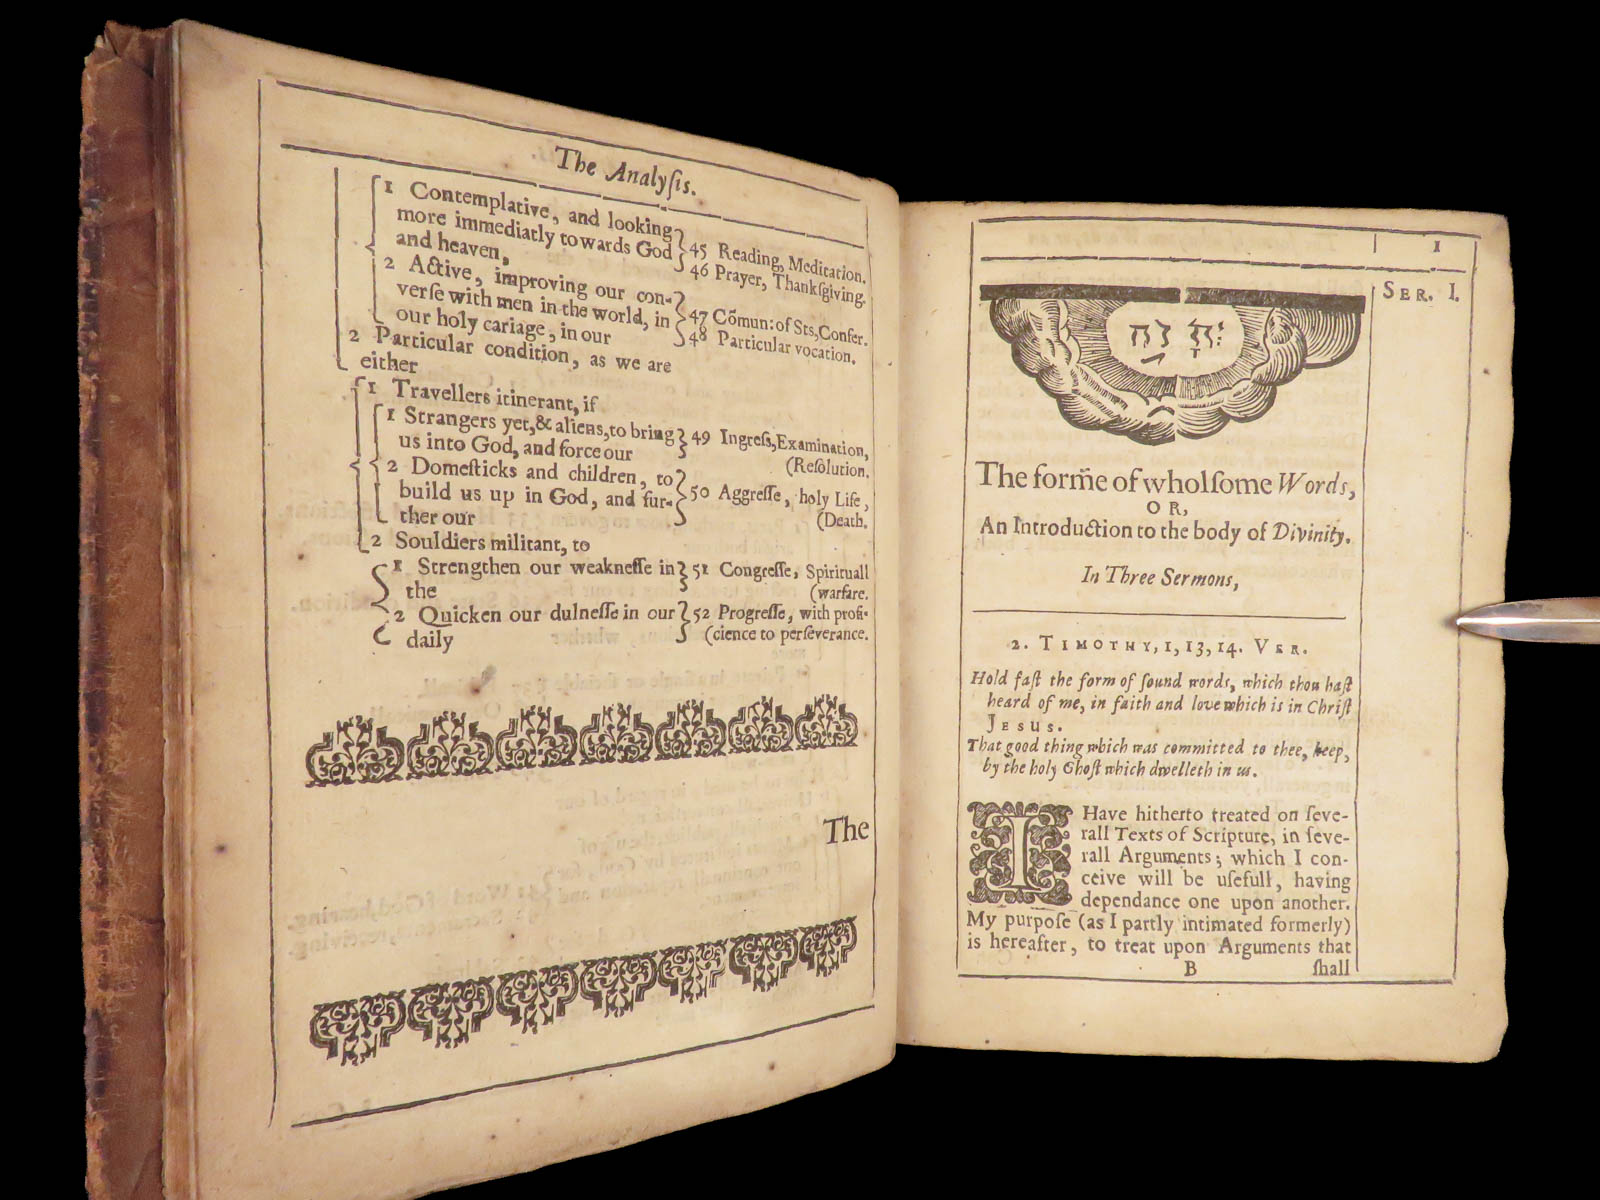 The Analyſis.
1 Contemplative, and looking
more immediatly towards God
and heaven,
45 Reading, Meditation.
46 Prayer, Thankſgiving.
2 Active, improving our con-
verſe with men in the world, in
our holy cariage, in our
47 Cõmun: of Sts, Confer.
48 Particular vocation.
2 Particular condition, as we are
either
1 Travellers itinerant, if
1 Strangers yet, & aliens, to bring
us into God, and force our
49 Ingreſs, Examination,
(Reſolution.
2 Domeſticks and children, to
build us up in God, and fur-
ther our
50 Aggreſſe, holy Life,
(Death.
2 Souldiers militant, to
1 Strengthen our weakneſſe in
the
51 Congreſſe, Spirituall
(warfare.
2 Quicken our dulneſſe in our
daily
52 Progreſſe, with profi-
(cience to perſeverance.
The
1
SER. I.
The form̃e of wholſome Words,
OR,
An Introduction to the body of Divinity.
In Three Sermons,
2. TIMOTHY, 1, 13, 14. VER.
Hold faſt the form of ſound words, which thou haſt
heard of me, in faith and love which is in Chriſt
JESUS.
That good thing which was committed to thee, keep,
by the holy Ghoſt which dwelleth in us.
I Have hitherto treated on ſeve-
rall Texts of Scripture, in ſeve-
rall Arguments; which I con-
ceive will be uſefull, having
dependance one upon another.
My purpoſe (as I partly intimated formerly)
is hereafter, to treat upon Arguments that
B
ſhall